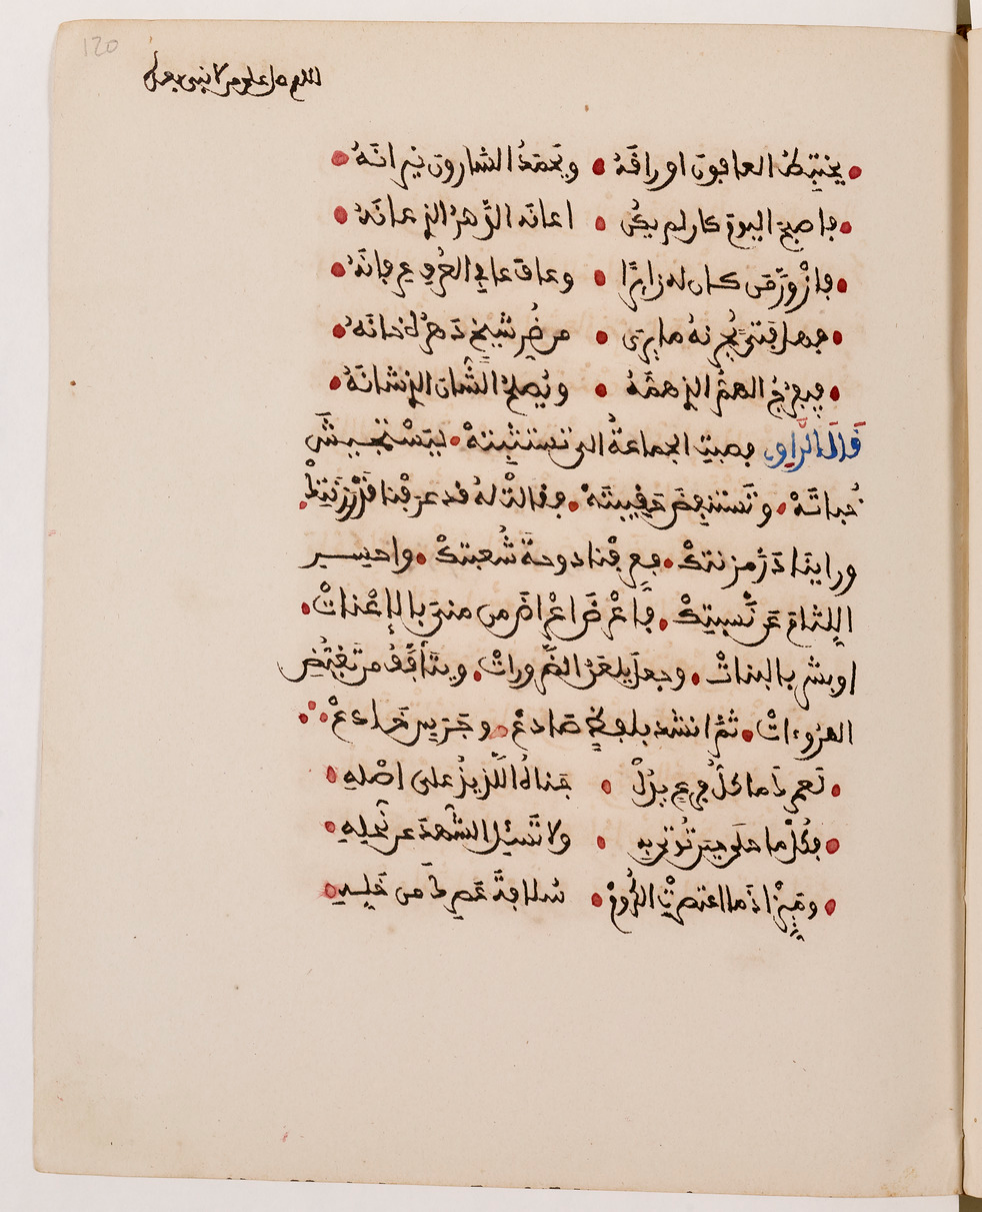 120
اللهم صل على من لا نبي بعده
يختبط العافون اوراقه • ويحمد السارون نيرانه •
فاصبح اليوم كان لم يكن • اعانه الدهر الذي عانه •
فازورّ من كان له زايرا • وعاف عافي العرف عرفانه •
فهل فتى يحزنه ما يرى • من ضر شيخ دهره خانه •
فيفرج الهم الذي همه • ويصلح الشان الذي شانه •
قال الراوي فصبت الجماعة الى ان تستثبته • ليستنجش
خباته • وتستنفض حقيبته • فقالت له قد عرفنا قدر رتبتك
وراينا در مزنتك • فعرفنا دوحة شعبتك • واحسر
اللثام عن نسبتك • فاعرض اعراض من مني بالاعنات •
او بشر بالبنات • وجعل يلعن الضرورات • ويتافف من تغيض
المروءات • ثم انشد بلفظ صادع • وجرس خادع
لعمرك ما كل فرع يدل • جناه اللذيذ على اصله •
فكل ما حلى حين توتى به • ولا تسئل الشهد عن نحله •
وميز اذا ما اعتصرت الكروم • سلافة عصرك من خله •